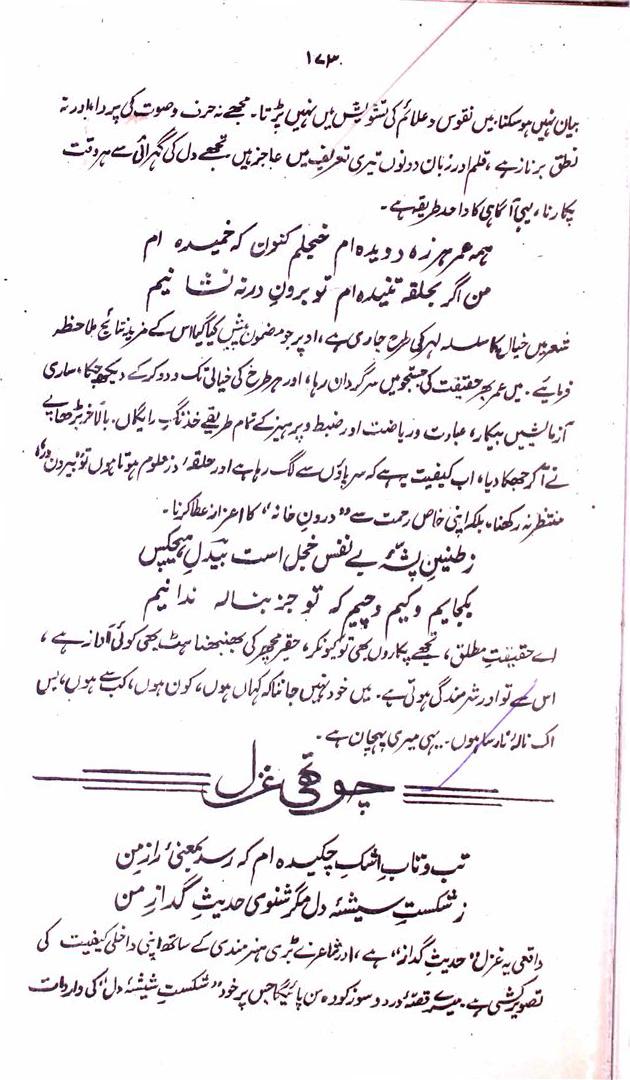 ۱۷۳
بیان نہیں ہو سکتا، میں نقوش و علائم کی تشویش میں نہیں پڑتا۔ مجھے نہ حرف و صوت کی پروا، اور نہ
نطق پر ناز ہے، قلم اور زبان دونوں تیری تعریف میں عاجز ہیں۔ تجھے دل کی گہرائی سے ہر وقت
پکارنا، یہی آگاہی کا واحد طریقہ ہے۔
ہمہ عمر ہرزہ دویدہ ام خجلم کنون کہ خمیدہ ام
من اگر بحلقہ تنیدہ ام تو برونِ در نہ نشانیم
شعر میں خیال کا سلسلہ لہر کی طرح جاری ہے، اوپر جو مضمون پیش کیا گیا اس کے مزید نتائج ملاحظہ
فرمایئے۔ میں عمر بھر حقیقت کی جستجو میں سرگردان رہا، اور ہر طرح کی خیالی تگ و دو کر کے دیکھ چکا، ساری
آزمائشیں بیکار، عبادت و ریاضت اور ضبط و پرہیز کے تمام طریقے خدنگِ رایگاں۔ بالآخر بڑھاپے
نے آ کر جھکا دیا، اب کیفیت یہ ہے کہ سر پاؤں سے لگ رہا ہے اور حلقۂ در معلوم ہوتا ہوں تو "بیرون در"
منتظر نہ رکھنا، بلکہ اپنی خاص رحمت سے "درونِ خانہ" کا اعزاز عطا کرنا۔
ز طنینِ پشۂ بے نفس خجل است بیدلِ ہیچکس
بکجایم و کیم و چیم کہ تو جز بنالہ ندانیم
اے حقیقتِ مطلق، تجھے پکاروں بھی تو کیونکر، حقیر مچھر کی بھنبھناہٹ بھی کوئی آواز ہے،
اس سے تو اور شرمندگی ہوتی ہے۔ میں خود نہیں جانتا کہ کہاں ہوں، کون ہوں، کب سے ہوں، بس
اک نالۂ نارسا ہوں۔ یہی میری پہچان ہے۔
چوتھی غزل
تب و تابِ اشکِ چکیدہ ام کہ رسد بمعنیٔ رازِ من
ز شکستِ شیشۂ دل مگر شنوی حدیثِ گدازِ من
واقعی یہ غزل "حدیثِ گداز" ہے، اور شاعر نے بڑی ہنرمندی کے ساتھ اپنی داخلی کیفیت کی
تصویر کشی ہے۔ میرے قصۂ درد و سوز کو وہ سن پائیگا جس پر خود "شکستِ شیشۂ دل" کی واردات